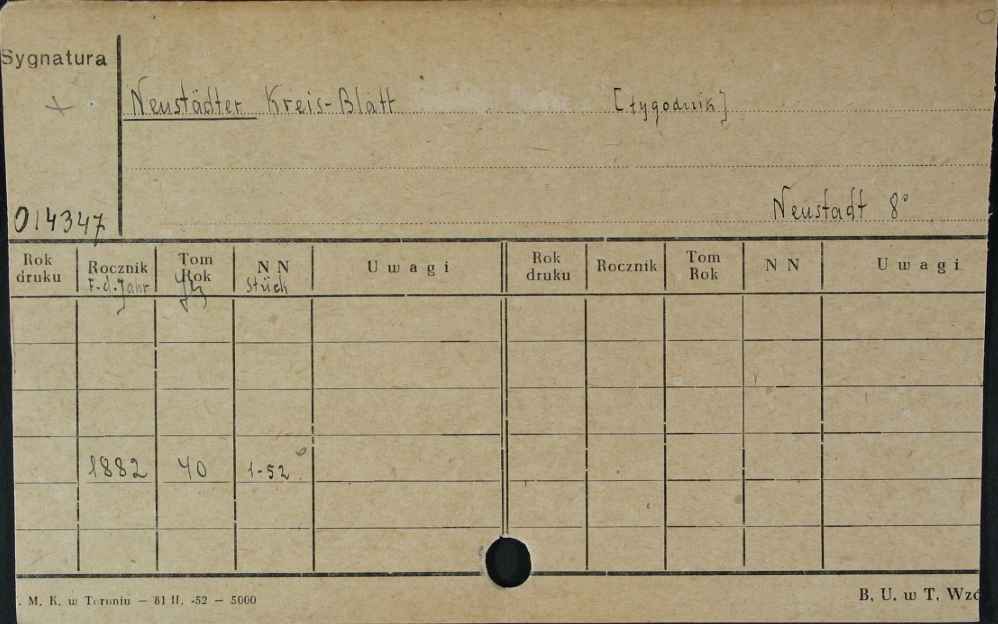 Sygnatura
Neustädter Kreis-Blatt [tygodnik]
Neustadt 8°
014347
Rok druku Rocznik Tom Rok N N U w a g i Rok druku Rocznik Tom Rok N N U w a g i
F.d.Jahr Stück
1882 40 1-52
. M. K. w Toruniu — 81 II. -52 — 5000
B. U. w T. Wzó